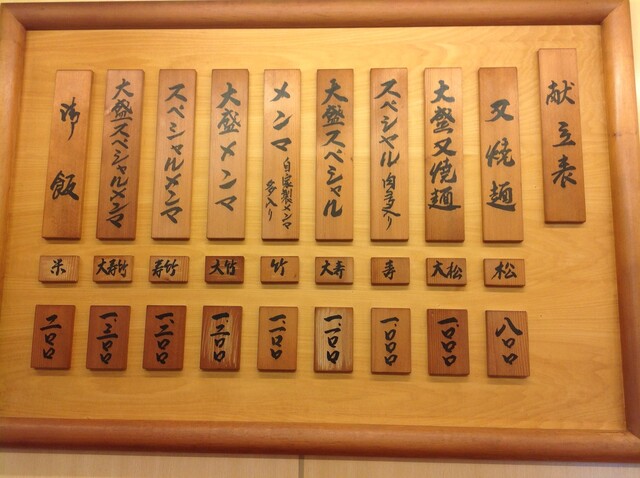 献立表
叉焼麺
松
八〇〇
大盛叉焼麺
大松
一、〇〇〇
スペシャル 肉多入り
寿
一、〇〇〇
大盛スペシャル
大寿
メンマ 自家製メンマ
多入り
竹
大盛メンマ
大竹
スペシャルメンマ
寿竹
大盛スペシャルメンマ
大寿竹
一、三〇〇
御飯
米
二〇〇